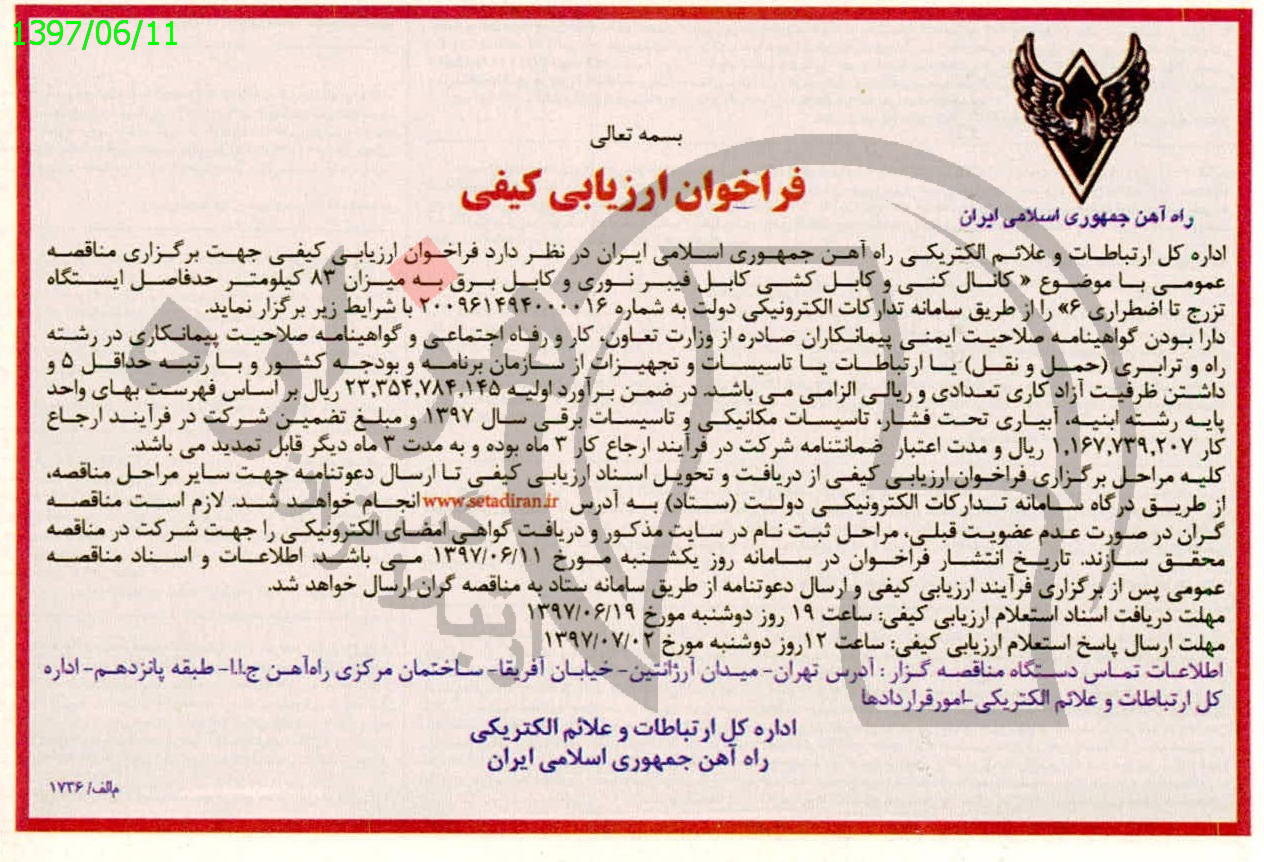 1397/06/11
راه آهن جمهوری اسلامی ایران
بسمه تعالی
فراخوان ارزیابی کیفی
اداره کل ارتباطات و علائم الکتریکی راه آهن جمهوری اسلامی ایران در نظر دارد فراخوان ارزیابی کیفی جهت برگزاری مناقصه
عمومی با موضوع « کانال کنی و کابل کشی کابل فیبر نوری و کابل برق به میزان ۸۳ کیلومتر حدفاصل ایستگاه
تزرج تا اضطراری ۶» را از طریق سامانه تدارکات الکترونیکی دولت به شماره ۲۰۰۹۶۱۴۹۴۰۰۰۰۱۶ با شرایط زیر برگزار نماید.
دارا بودن گواهینامه صلاحیت ایمنی پیمانکاران صادره از وزارت تعاون، کار و رفاه اجتماعی و گواهینامه صلاحیت پیمانکاری در رشته
راه و ترابری (حمل و نقل) یا ارتباطات یا تاسیسات و تجهیزات از سازمان برنامه و بودجه کشور و با رتبه حداقل ۵ و
داشتن ظرفیت آزاد کاری تعدادی و ریالی الزامی می باشد. در ضمن برآورد اولیه ۲۳,۳۵۴,۷۸۴,۱۴۵ ریال بر اساس فهرست بهای واحد
پایه رشته ابنیه، آبیاری تحت فشار، تاسیسات مکانیکی و تاسیسات برقی سال ۱۳۹۷ و مبلغ تضمین شرکت در فرآیند ارجاع
کار ۱,۱۶۷,۷۳۹,۲۰۷ ریال و مدت اعتبار ضمانتنامه شرکت در فرآیند ارجاع کار ۳ ماه بوده و به مدت ۳ ماه دیگر قابل تمدید می باشد.
کلیه مراحل برگزاری فراخوان ارزیابی کیفی از دریافت و تحویل اسناد ارزیابی کیفی تا ارسال دعوتنامه جهت سایر مراحل مناقصه،
از طریق درگاه سامانه تدارکات الکترونیکی دولت (ستاد) به آدرس www.setadiran.ir انجام خواهد شد. لازم است مناقصه
گران در صورت عدم عضویت قبلی، مراحل ثبت نام در سایت مذکور و دریافت گواهی امضای الکترونیکی را جهت شرکت در مناقصه
محقق سازند. تاریخ انتشار فراخوان در سامانه روز یکشنبه مورخ ۱۳۹۷/۰۶/۱۱ می باشد. اطلاعات و اسناد مناقصه
عمومی پس از برگزاری فرآیند ارزیابی کیفی و ارسال دعوتنامه از طریق سامانه ستاد به مناقصه گران ارسال خواهد شد.
مهلت دریافت اسناد استعلام ارزیابی کیفی: ساعت ۱۹ روز دوشنبه مورخ ۱۳۹۷/۰۶/۱۹
مهلت ارسال پاسخ استعلام ارزیابی کیفی: ساعت ۱۲روز دوشنبه مورخ ۱۳۹۷/۰۷/۰۲
اطلاعات تماس دستگاه مناقصه گزار : آدرس تهران- میدان آرژانتین- خیابان آفریقا- ساختمان مرکزی راه‌آهن ج.ا.ا- طبقه پانزدهم- اداره
کل ارتباطات و علائم الکتریکی-امورقراردادها
اداره کل ارتباطات و علائم الکتریکی
راه آهن جمهوری اسلامی ایران
م‌الف/ ۱۷۳۶